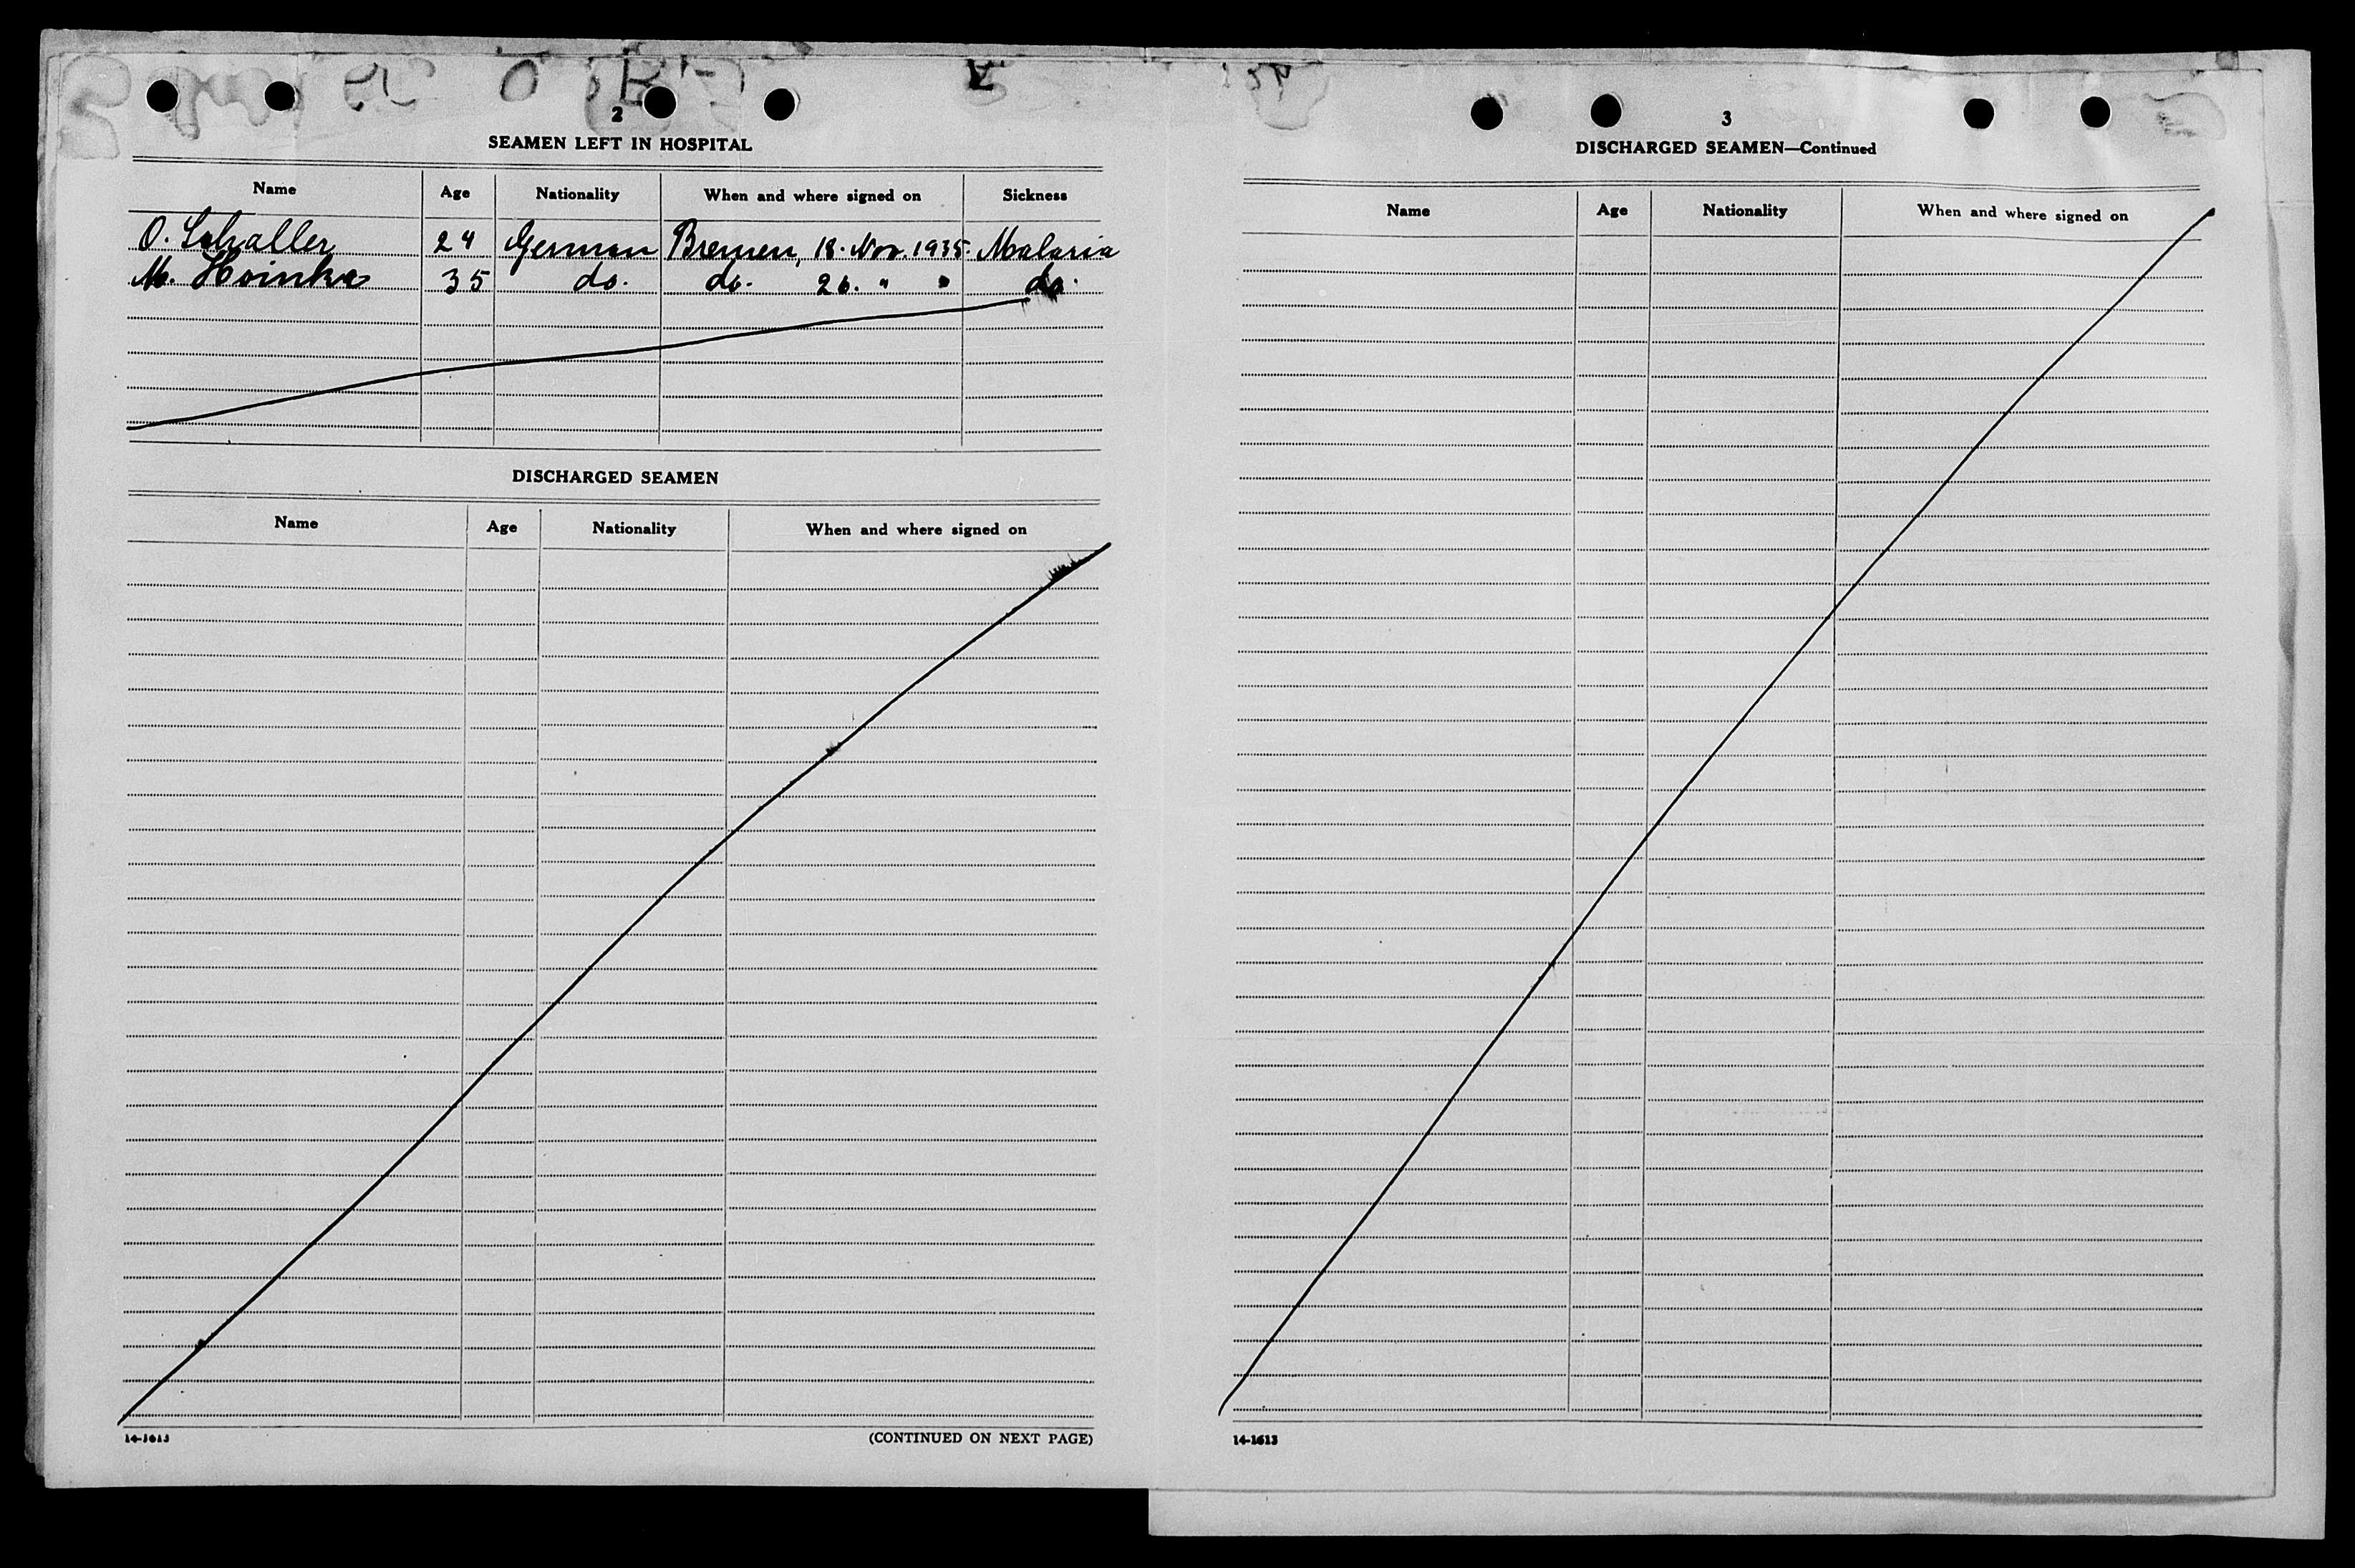 2
SEAMEN LEFT IN HOSPITAL
Name Age Nationality When and where signed on Sickness
O. Schaller 24 German Bremen, 18. Nov. 1935. Malaria
M. Hoinka 35 do. do. 26. " " do.
DISCHARGED SEAMEN
Name Age Nationality When and where signed on
14-1613 (CONTINUED ON NEXT PAGE)
3
DISCHARGED SEAMEN—Continued
Name Age Nationality When and where signed on
14-1613